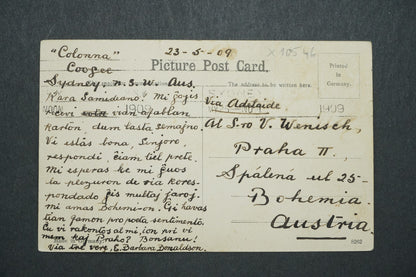 "Colonna"
Coogee
Sydney, N.S.W. Aus.
23-5-09
X 10546
Picture Post Card.
Printed in Germany.
The address to be written here.
Kara Samideano! Mi ĝojis
ricevi vian afablan
karton, dum lasta semajno.
Vi estas bona, Sinjoro,
respondi, ĉiam tiel prete.
Mi esperas ke mi ĝuos
la plezuron de via kores-
pondado ĝis multaj jaroj.
mi amas Bohemion. Ĝi havas
tian famon pro poeta sentimento.
Ĉu vi rakontos al mi, ion pri vi
mem kaj Praho? Bonsanu!
Via tre vere, E. Barbara Donaldson.
NOON
1909
1909
Via Adelaide
Al S-ro V. Wenisch,
Praha II.,
Spálená ul 25-
Bohemia.
Austria.